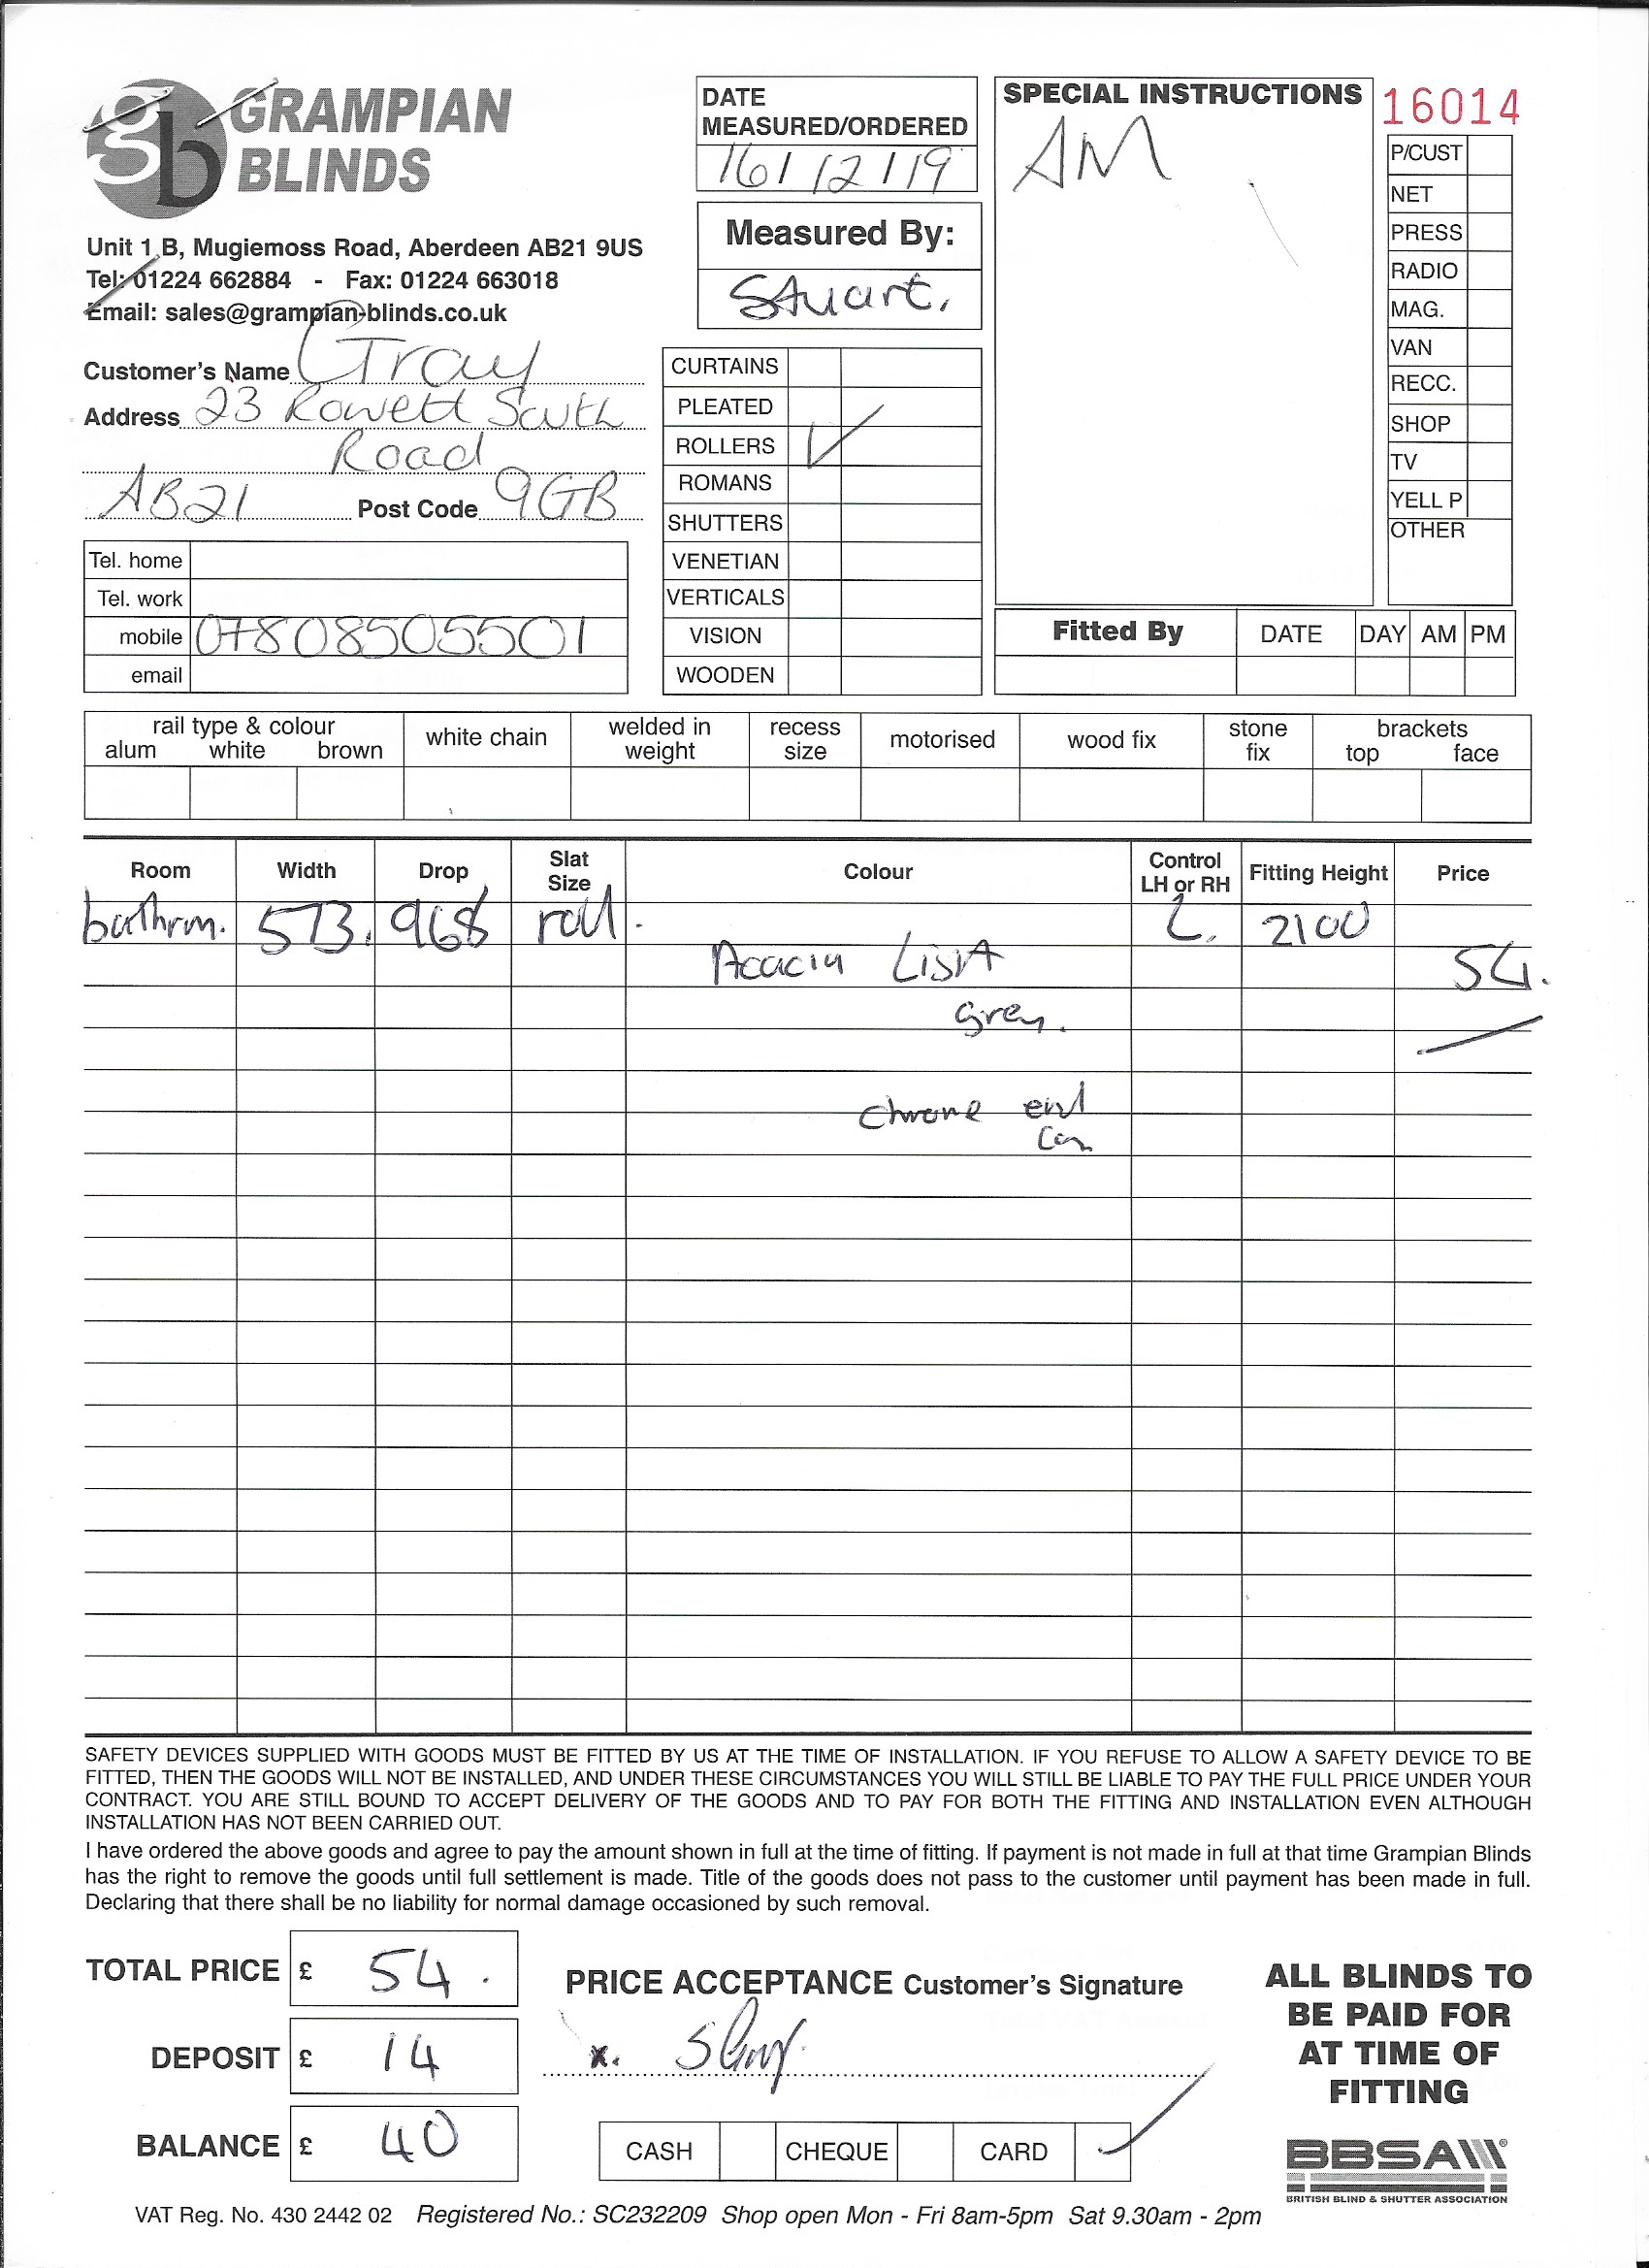 GRAMPIAN
BLINDS
Unit 1 B, Mugiemoss Road, Aberdeen AB21 9US
Tel: 01224 662884 - Fax: 01224 663018
Email: sales@grampian-blinds.co.uk
Customer's Name Gray
Address 23 Rowett South
Road
AB21 Post Code 9GB
Tel. home
Tel. work
mobile 07808505501
email
DATE
MEASURED/ORDERED
16/12/19
Measured By:
Stuart.
CURTAINS
PLEATED
ROLLERS ✓
ROMANS
SHUTTERS
VENETIAN
VERTICALS
VISION
WOODEN
SPECIAL INSTRUCTIONS
AM
16014
P/CUST
NET
PRESS
RADIO
MAG.
VAN
RECC.
SHOP
TV
YELL P
OTHER
Fitted By DATE DAY AM PM
rail type & colour
alum white brown
white chain
welded in
weight
recess
size
motorised
wood fix
stone
fix
brackets
top face
Room Width Drop Slat Size Colour Control LH or RH Fitting Height Price
bathrm. 573. 968 roll. L. 2100
Acacia Light 54.
grey.
Chrome end
Cap
SAFETY DEVICES SUPPLIED WITH GOODS MUST BE FITTED BY US AT THE TIME OF INSTALLATION. IF YOU REFUSE TO ALLOW A SAFETY DEVICE TO BE
FITTED, THEN THE GOODS WILL NOT BE INSTALLED, AND UNDER THESE CIRCUMSTANCES YOU WILL STILL BE LIABLE TO PAY THE FULL PRICE UNDER YOUR
CONTRACT. YOU ARE STILL BOUND TO ACCEPT DELIVERY OF THE GOODS AND TO PAY FOR BOTH THE FITTING AND INSTALLATION EVEN ALTHOUGH
INSTALLATION HAS NOT BEEN CARRIED OUT.
I have ordered the above goods and agree to pay the amount shown in full at the time of fitting. If payment is not made in full at that time Grampian Blinds
has the right to remove the goods until full settlement is made. Title of the goods does not pass to the customer until payment has been made in full.
Declaring that there shall be no liability for normal damage occasioned by such removal.
TOTAL PRICE £ 54.
DEPOSIT £ 14
BALANCE £ 40
PRICE ACCEPTANCE Customer's Signature
x. SGray.
CASH CHEQUE CARD ✓
ALL BLINDS TO
BE PAID FOR
AT TIME OF
FITTING
BBSA
BRITISH BLIND & SHUTTER ASSOCIATION
VAT Reg. No. 430 2442 02 Registered No.: SC232209 Shop open Mon - Fri 8am-5pm Sat 9.30am - 2pm